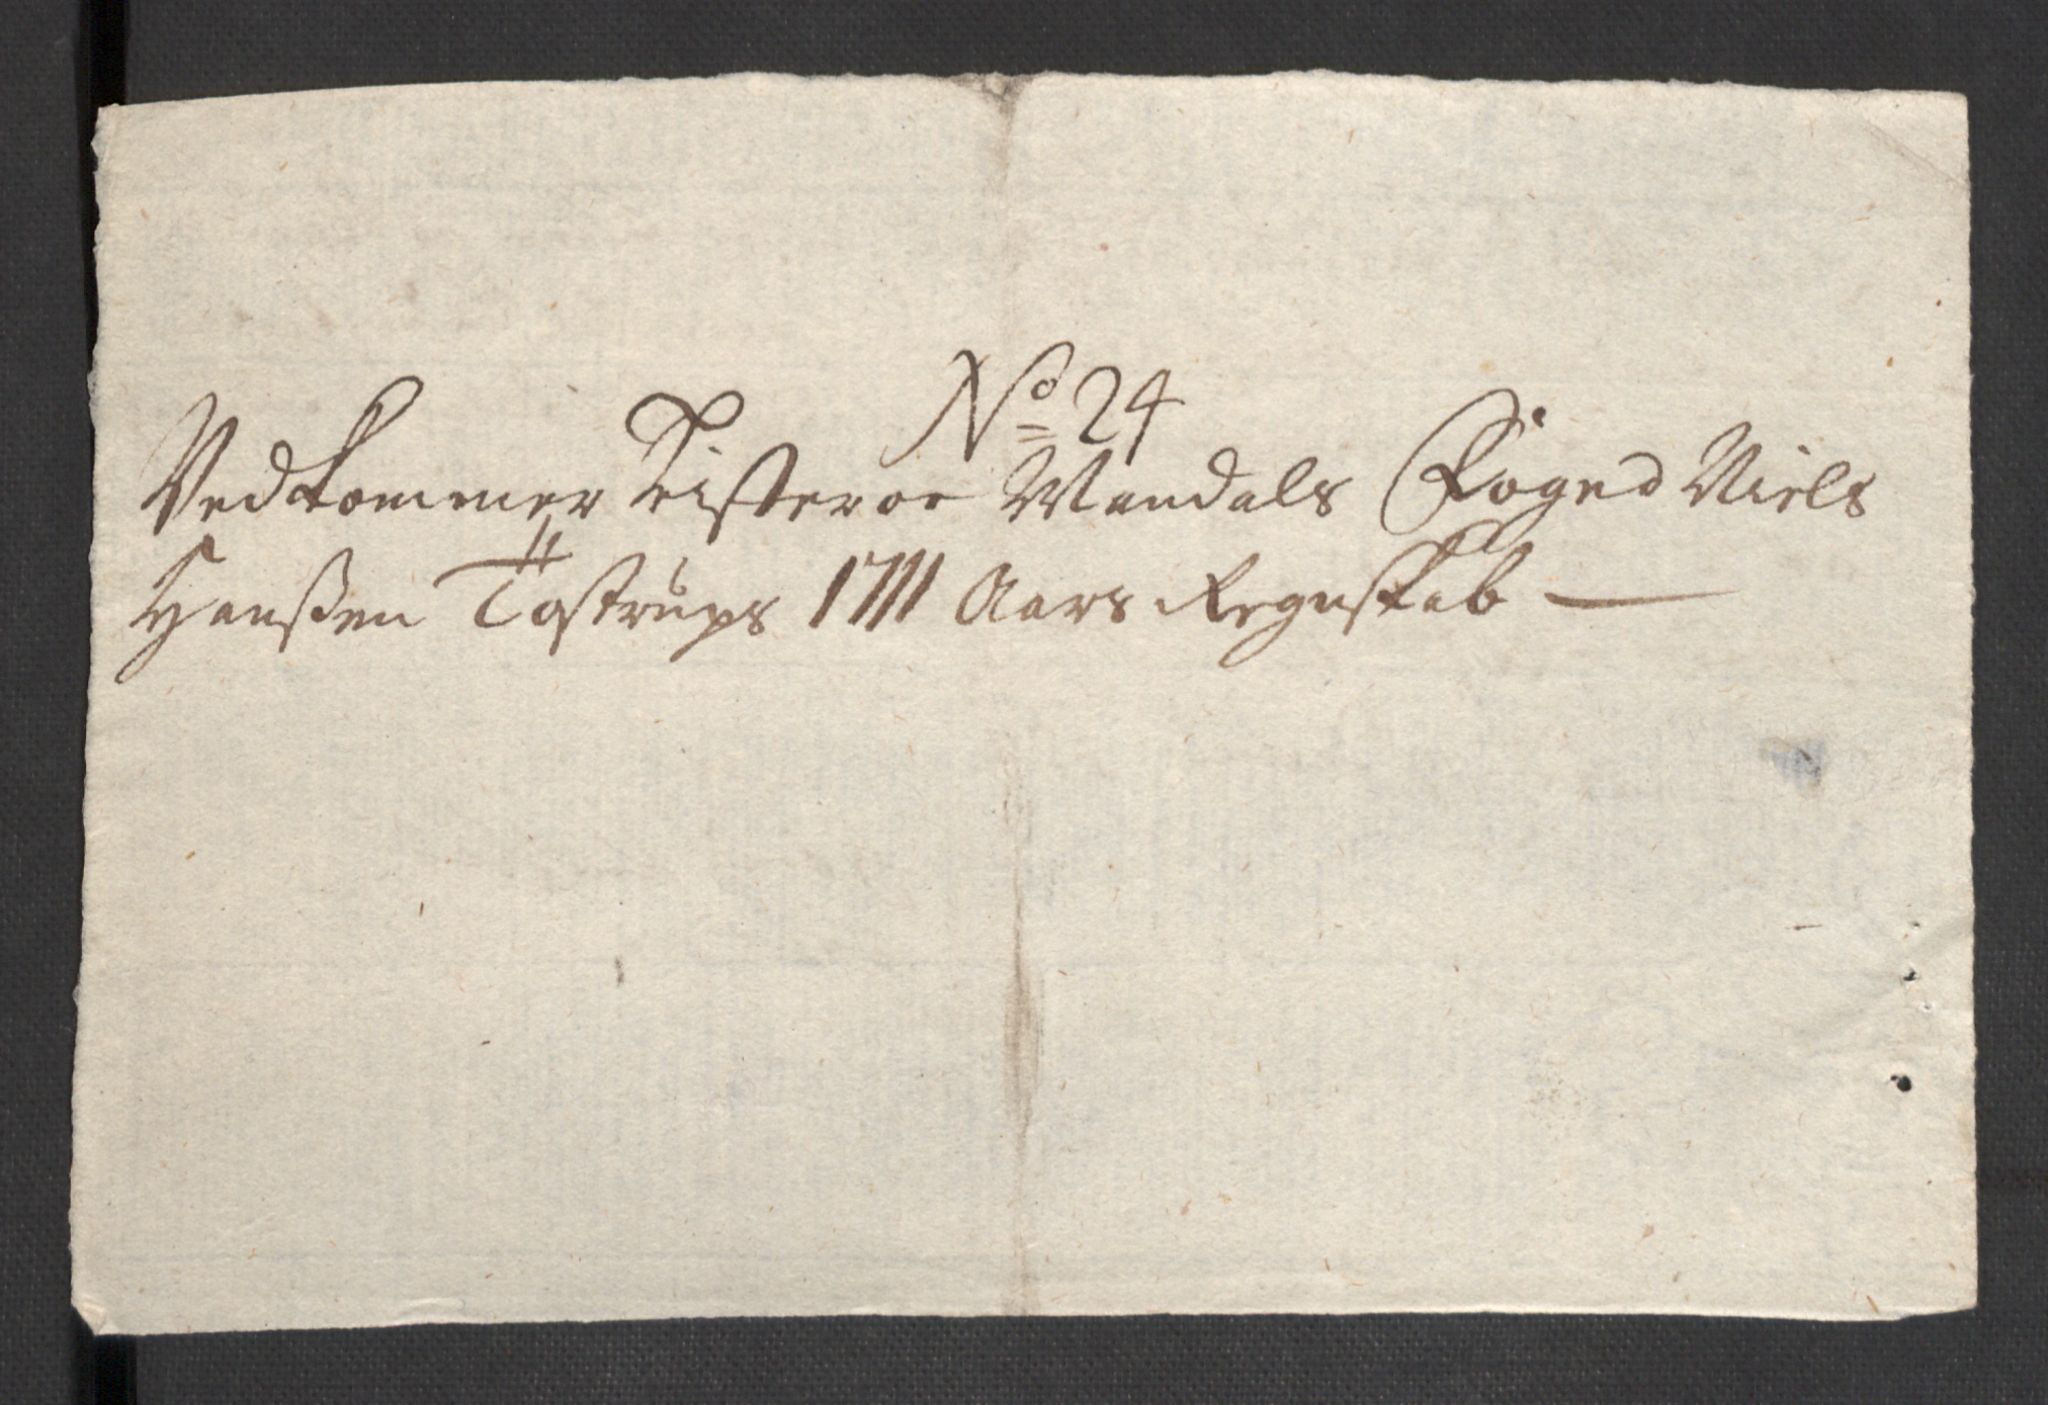 No 24
Vedkommer Lister oc Mandals Foged Niels
Hanßen Tostrups 1711 Aars Regnskab